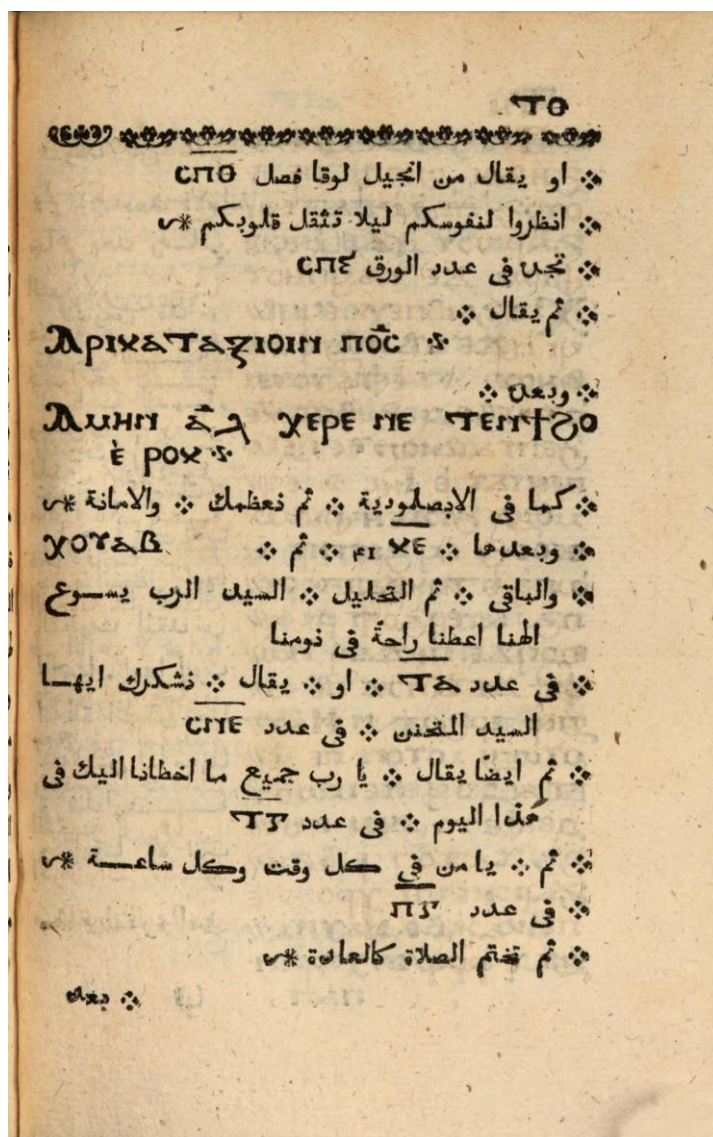 ⲧⲑ
༶ او يقال من انجيل لوقا فصل ⲥⲡⲑ
༶ انظروا لنفوسكم ليلا تثقل قلوبكم
༶ تجد فى عدد الورق ⲥⲡⲉ
༶ ثم يقال ༶
Ⲁⲣⲓⲕⲁⲧⲁⲝⲓⲟⲓⲛ ⲡⲟ̅ⲥ
༶ وبعده ༶
Ⲁⲙⲏⲛ ⲁ̅ⲗ ⲭⲉⲣⲉ ⲛⲉ ⲧⲉⲛϯϩⲟ
ⲉ̀ ⲣⲟⲕ
༶ كما فى الابصلودية ༶ ثم نعظمك ༶ والامانة
༶ وبعدها ༶ ⲕⲉ ༶ ثم ༶ ⲭⲟⲩⲁⲃ
༶ والباقى ༶ ثم التحليل ༶ السيد الرب يسوع
الهنا اعطنا راحةً فى نومنا
༶ فى عدد ⲧⲁ ༶ او ༶ يقال ༶ نشكرك ايها
السيد المتحنن ༶ فى عدد ⲥⲛⲉ
༶ ثم ايضًا يقال ༶ يا رب جميع ما اخطانا اليك فى
هذا اليوم ༶ فى عدد
༶ ثم ༶ يا من فى كل وقت وكل ساعة
༶ فى عدد
༶ ثم تختم الصلاة كالعادة
༶ بعد